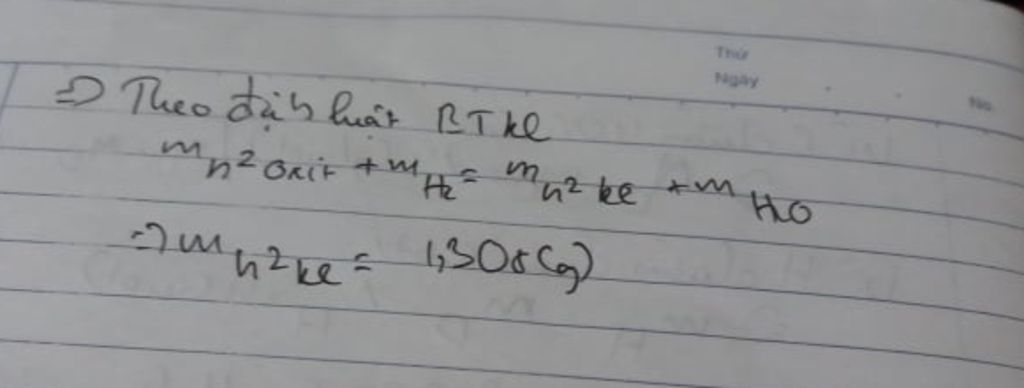 Thứ
Ngày
No
=> Theo định luật BTKL
m h² oxit + m H2 = m h² kl + m H2O
=> m h² kl = 1,308(g)